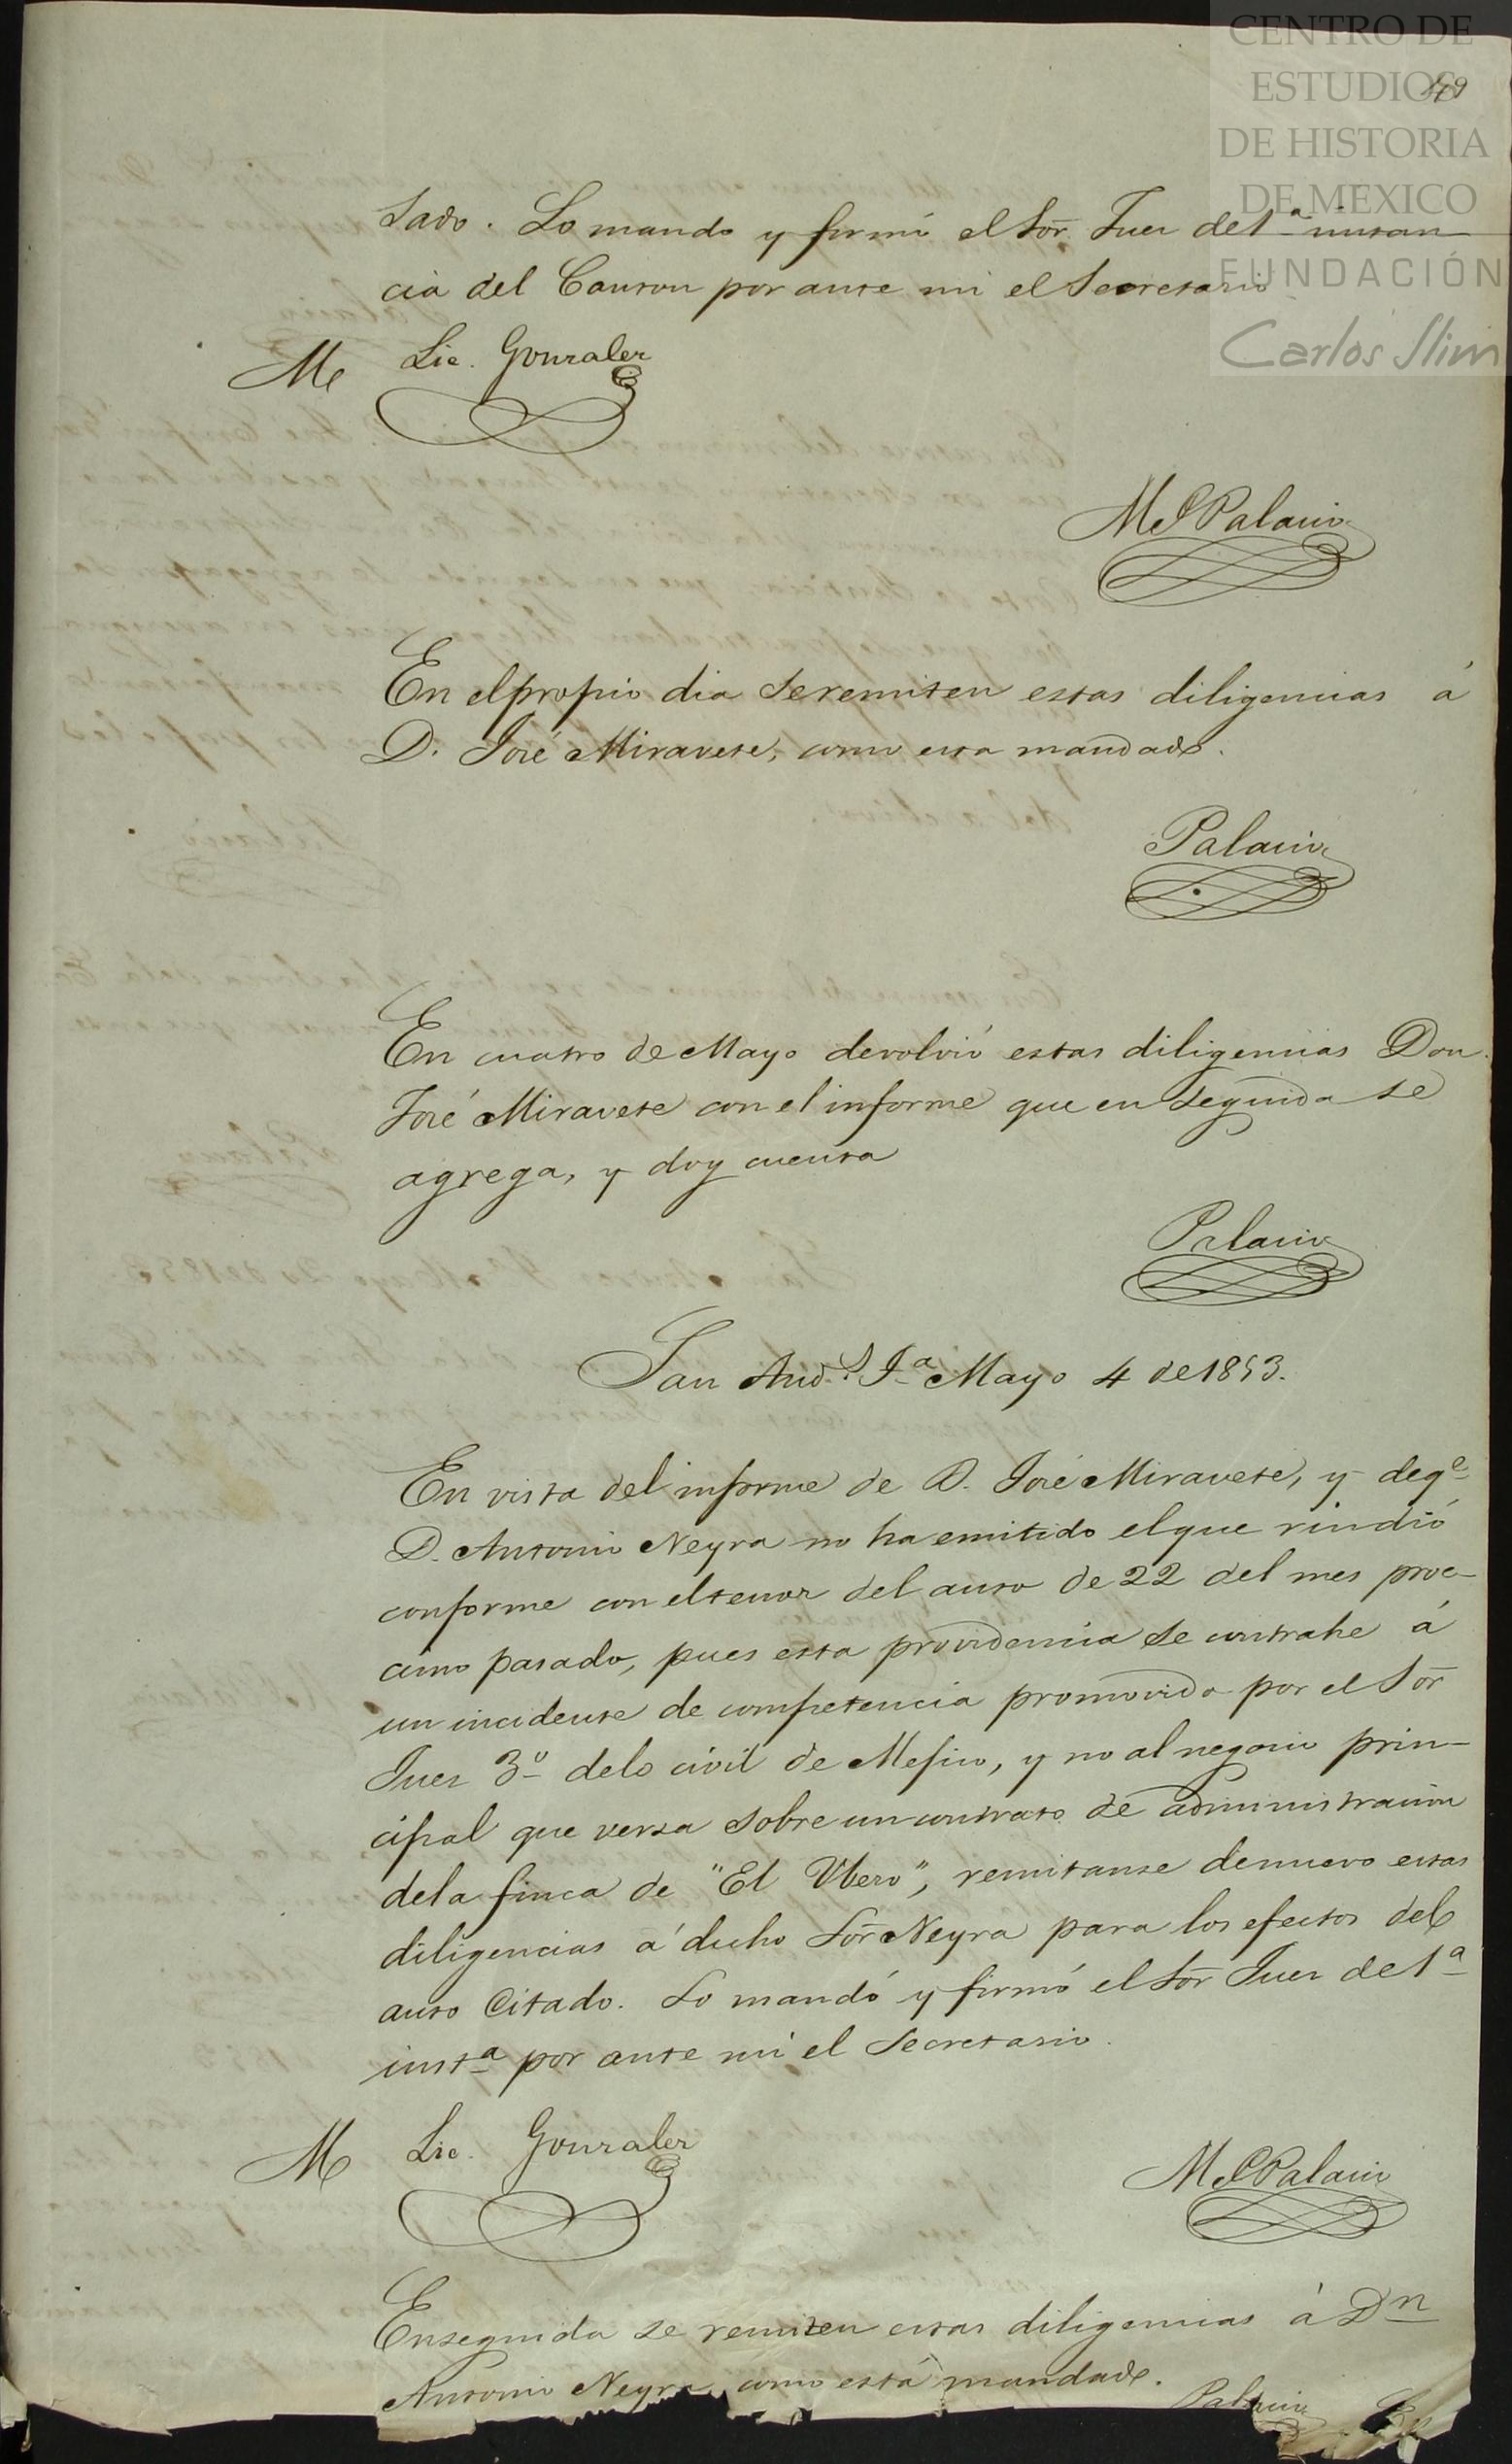 CENTRO DE
ESTUDIOS
DE HISTORIA
DE MEXICO
FUNDACIÓN
Carlos Slim
49
sado. Lo mando y firmó el Sōr. Juez de 1ª instan
cia del Canton por ante mi el Secretario
Lic. Gonzalez
M. Palacio
En el propio dia se remiten estas diligencias á
D. José Miravete, como esta mandado.
Palacio
En cuatro de Mayo devolvió estas diligencias Don
José Miravete con el informe que en seguida se
agrega, y doy cuenta
Palacio
San And.s Ja Mayo 4 de 1853.
En vista del informe de D. José Miravete, y de qe
D. Antonio Neyra no ha emitido el que rindió
conforme con el tenor del auto de 22 del mes proc-
simo pasado, pues esta providencia se contrahe á
un incidente de competencia promovido por el Sōr
Juez 3º de lo civil de Mejico, y no al negocio prin-
cipal que versa sobre un contrato de administracion
de la finca de "El Ubero", remitanse de nuevo estas
diligencias á dicho Sōr Neyra para los efectos del
auto Citado. Lo mandó y firmó el Sōr Juez de 1ª
instª por ante mi el Secretario.
Lic. Gonzalez
M. Palacio
Enseguida se remiten estas diligencias á Dn
Antonio Neyra como está mandado.
Palacio